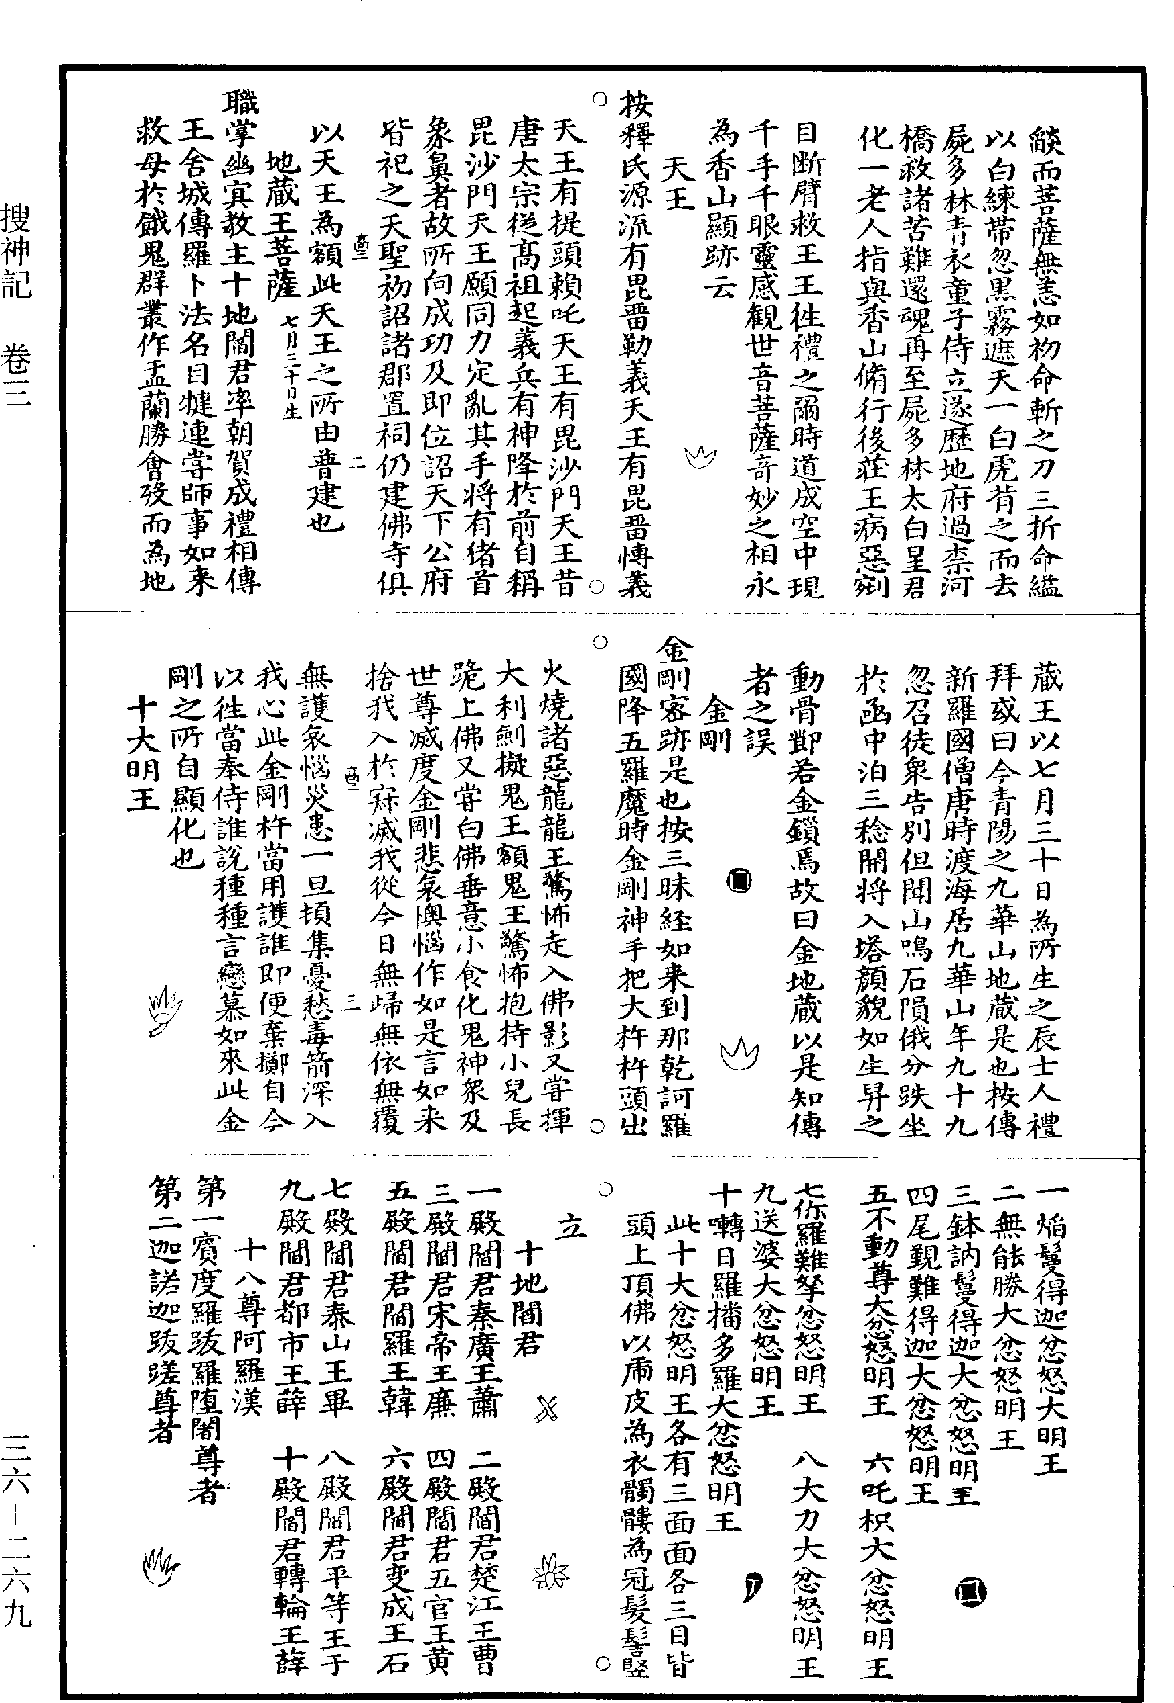 燄而菩薩無恙如初命斬之刀三折命縊
以白練帶忽黑霧遮天一白虎背之而去
屍多林青衣童子侍立遂歷地府過柰河
橋救諸苦難還魂再至屍多林太白星君
化一老人指與香山脩行後莊王病惡剜
目断臂救王王徃禮之爾時道成空中現
千手千眼靈感觀世音菩薩奇妙之相永
為香山顯跡云
天王
按釋氏源流有毘畱勒義天王有毘畱慱義
天王有提頭賴吒天王有毘沙門天王昔
唐太宗從髙祖起義兵有神降於前自稱
毘沙門天王願同力定亂其手將有猪首
象鼻者故所向成功及即位詔天下公府
皆祀之天聖初詔諸郡置祠仍建佛寺俱
以天王為額此天王之所由普建也
地蔵王菩薩 七月三十日生
職掌幽冥教主十地閻君率朝賀成禮相傳
王舍城傳羅卜法名目犍連嘗師事如来
救母於餓鬼群叢作盂蘭勝會殁而為地
蔵王以七月三十日為所生之辰士人禮
拜或曰今青陽之九華山地蔵是也按傳
新羅國僧唐時渡海居九華山年九十九
忽召徒衆告別但聞山鳴石隕俄分跌坐
於函中洎三稔開將入塔顔貌如生舁之
動骨節若金鎖焉故曰金地蔵以是知傳
者之誤
金剛
金剛宻跡是也按三昧経如来到那乾訶羅
國降五羅魔時金剛神手把大杵杵頭出
火燒諸惡龍龍王驚怖走入佛影又嘗揮
大利劍擬鬼王額鬼王驚怖抱持小兒長
跪上佛又嘗白佛垂意小食化鬼神衆及
世尊滅度金剛悲哀懊惱作如是言如来
捨我入於寂滅我從今日無歸無依無覆
無護哀惱災患一旦頓集憂愁毒箭深入
我心此金剛杵當用護誰即便棄擲自今
以徃當奉侍誰說種種言戀慕如來此金
剛之所自顯化也
十大明王
一焰鬘得迦忿怒大明王
二無能勝大忿怒明王
三鉢訥鬘得迦大忿怒明王
四尾覲難得迦大忿怒明王
五不動尊大忿怒明王 六吒枳大忿怒明王
七你羅難拏忿怒明王 八大力大忿怒明王
九送婆大忿怒明王
十囀日羅播多羅大忿怒明王
此十大忿怒明王各有三面面各三目皆
頭上頂佛以虎皮為衣髑髏為冠髮髻豎
立
十地閻君
一殿閻君秦廣王蕭 二殿閻君楚江王曹
三殿閻君宋帝王廉 四殿閻君五官王黄
五殿閻君閻羅王韓 六殿閻君变成王石
七殿閻君泰山王畢 八殿閻君平等王于
九殿閻君都市王薛 十殿閻君轉輪王薛
十八尊阿羅漢
第一賓度羅跋羅堕闍尊者
第二迦諾迦跋蹉尊者
搜神記 卷三
三六－二六九